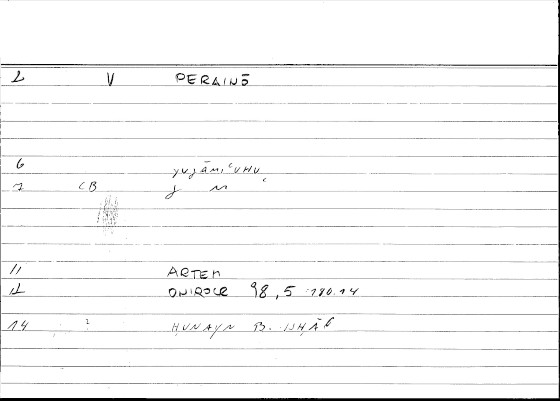 1 V PERAINŌ
6 yuǧāmiʿuhu
7 CB ǧ m ʿ
11 ARTEM
12 ONIROCR 98,5 180.14
14 ? ḤUNAYN B. ISḤĀQ